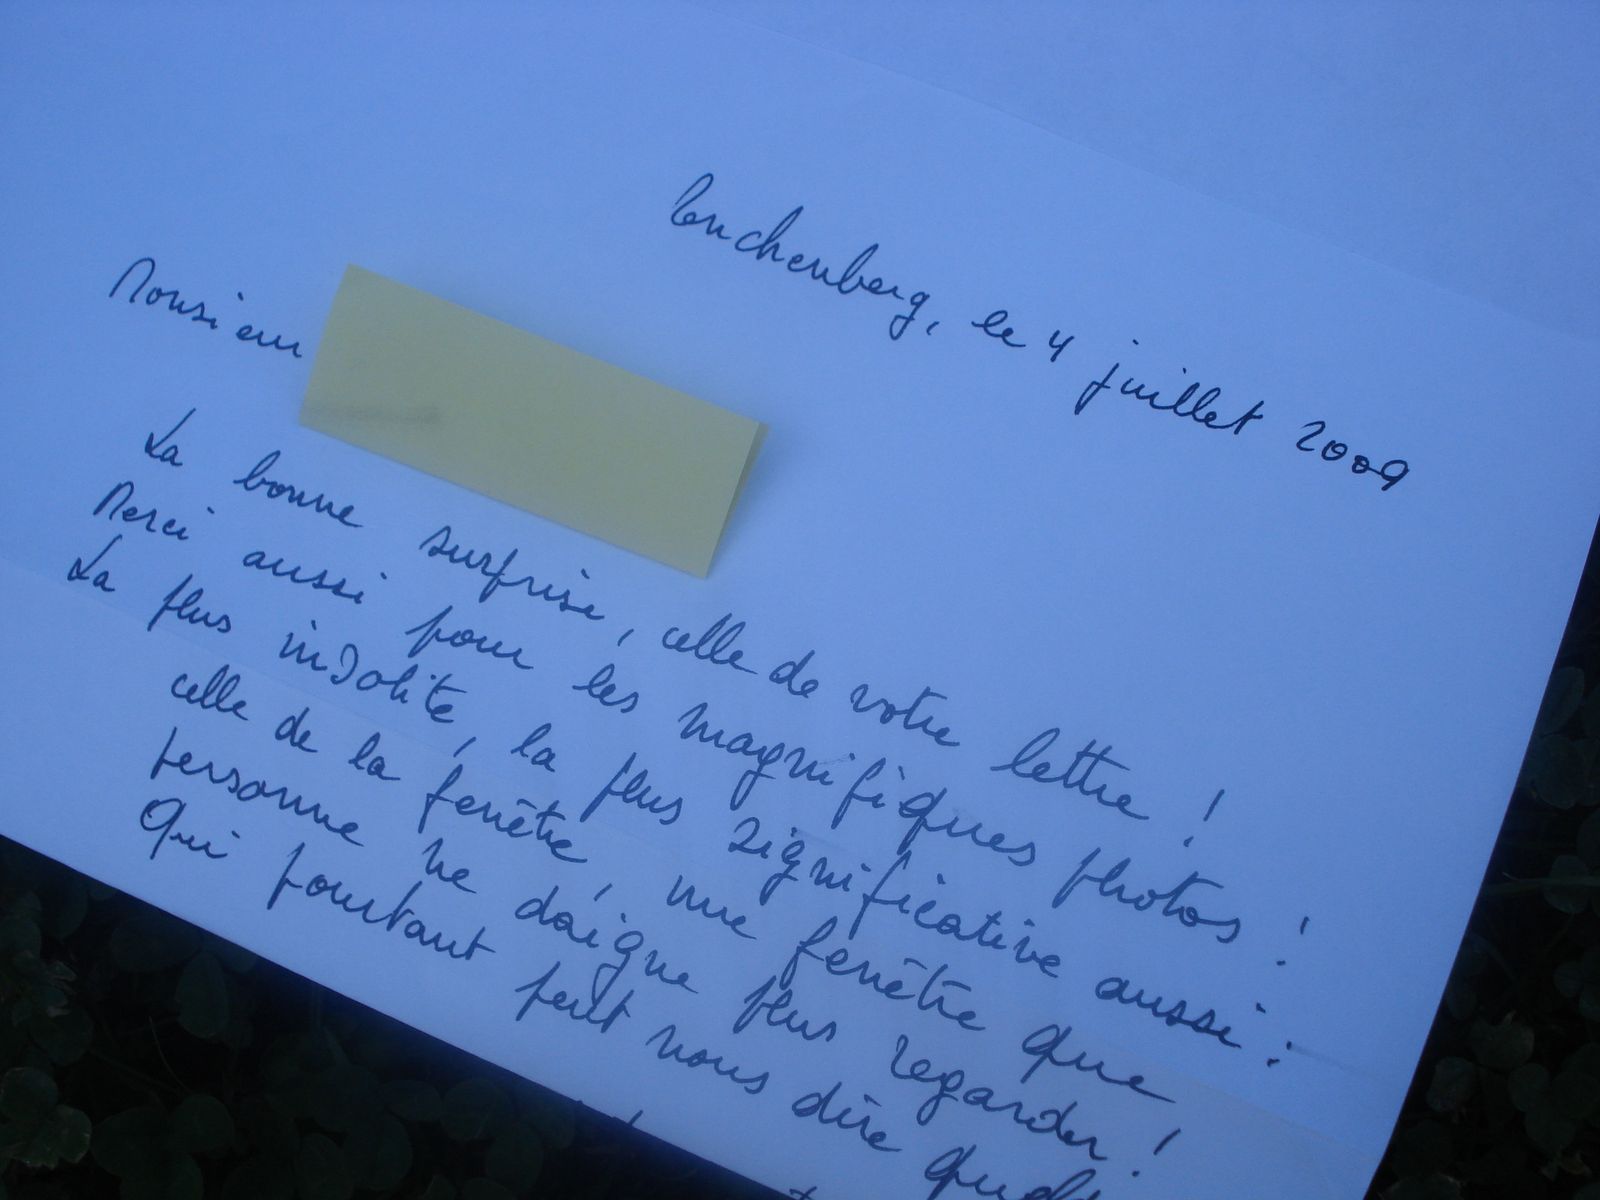 Louchenberg, le 4 juillet 2009
Monsieur
La bonne surprise, celle de votre lettre !
Merci aussi pour les magnifiques photos !
La plus insolite, la plus significative aussi :
celle de la fenêtre, une fenêtre que
personne ne daigne plus regarder !
Qui pourtant peut nous dire